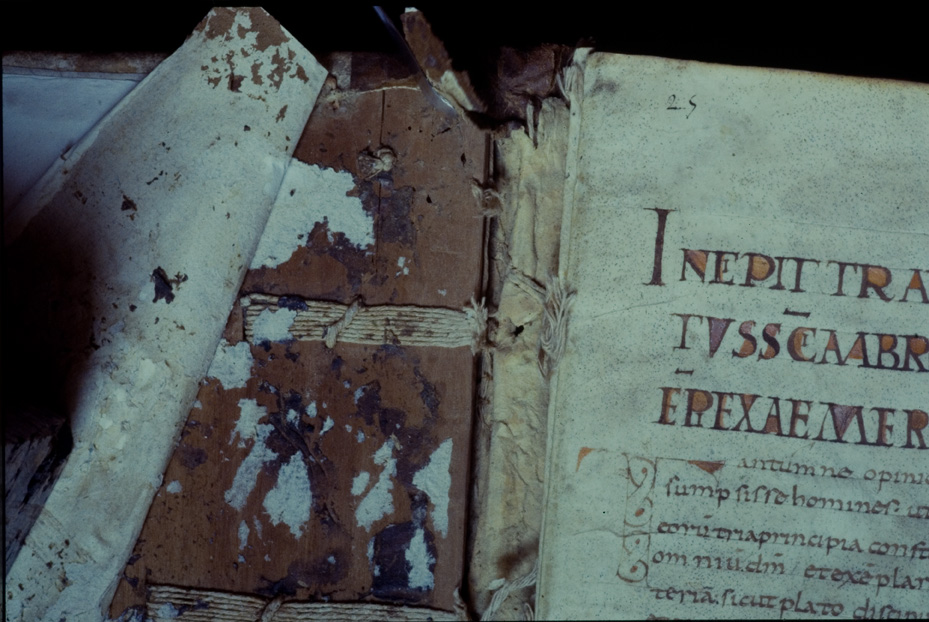 25
INCPIT TRA
TUS S̄C̄I AMBR
EP̄I EXAEMER
Tantumne opini
sumpsisse homines. ut
eorū tria principia const
omniū. dm̄ et exēplar
teriā. sicut plato